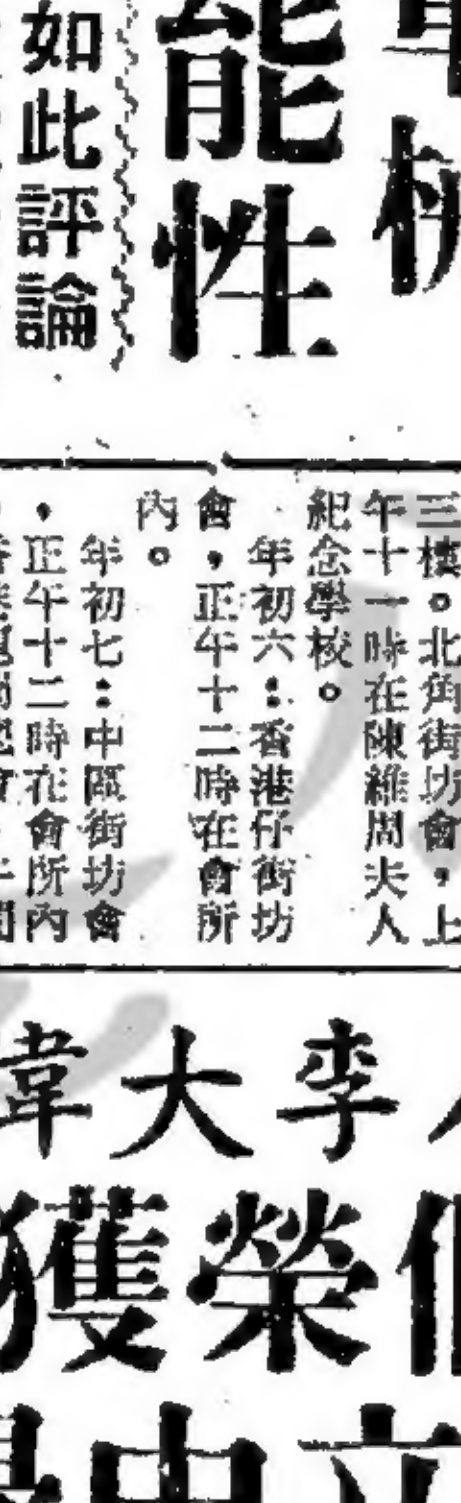 能性
如此評論
三樓。北角街坊會，上
午十一時在陳維周夫人
紀念學校。
年初六：香港仔街坊
會，正午十二時在會所
內。
年初七：中區街坊會
，正午十二時在會所內
李大韋
榮獲